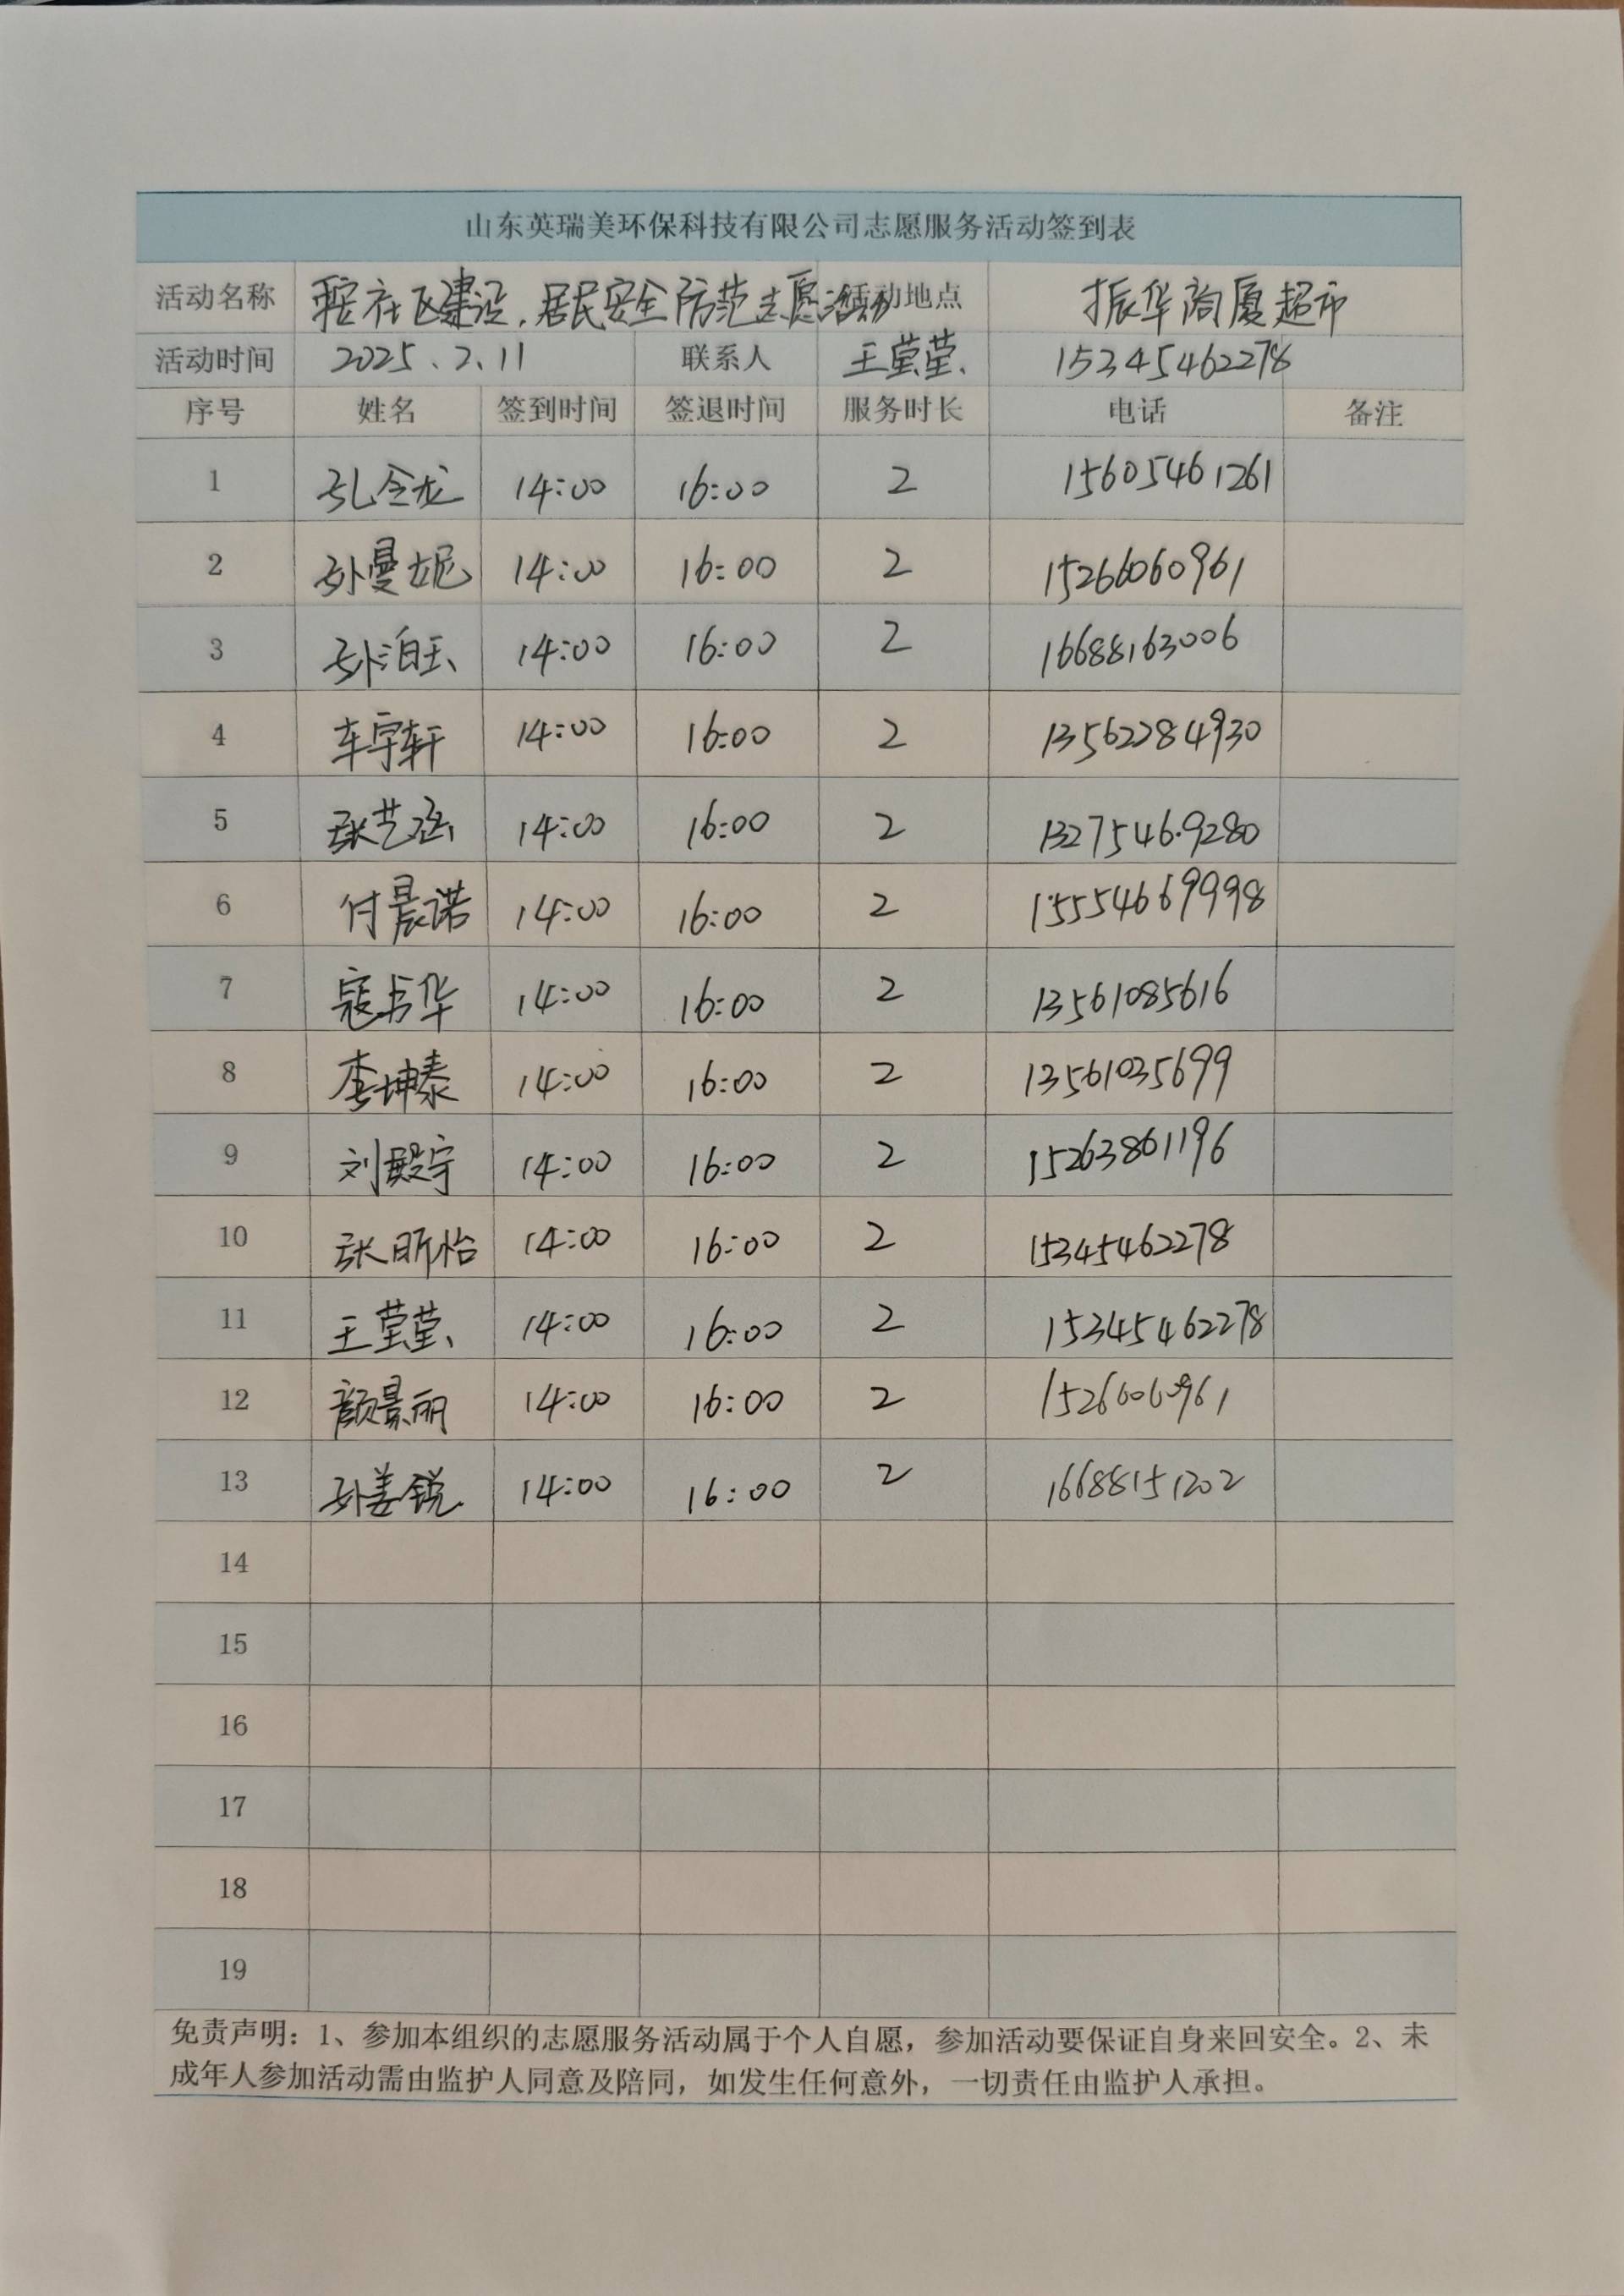 山东英瑞美环保科技有限公司志愿服务活动签到表
活动名称 社区建设,居民安全防范志愿活动 活动地点 振华商厦超市
活动时间 2025.2.11 联系人 王莹莹 15345462278
序号 姓名 签到时间 签退时间 服务时长 电话 备注
1 孔令龙 14:00 16:00 2 15605461261
2 孙曼妮 14:00 16:00 2 15266060961
3 孙泊玉 14:00 16:00 2 16688163006
4 车宇轩 14:00 16:00 2 13562284930
5 张艺涵 14:00 16:00 2 13275469280
6 付晨诺 14:00 16:00 2 15554669998
7 寇占华 14:00 16:00 2 13561085616
8 李坤泰 14:00 16:00 2 13561035699
9 刘殿宇 14:00 16:00 2 15263861196
10 张昕怡 14:00 16:00 2 15345462278
11 王莹莹 14:00 16:00 2 15345462278
12 颜景丽 14:00 16:00 2 15266060961
13 孙姜锐 14:00 16:00 2 16688151202
14
15
16
17
18
19
免责声明:1、参加本组织的志愿服务活动属于个人自愿,参加活动要保证自身来回安全。2、未
成年人参加活动需由监护人同意及陪同,如发生任何意外,一切责任由监护人承担。